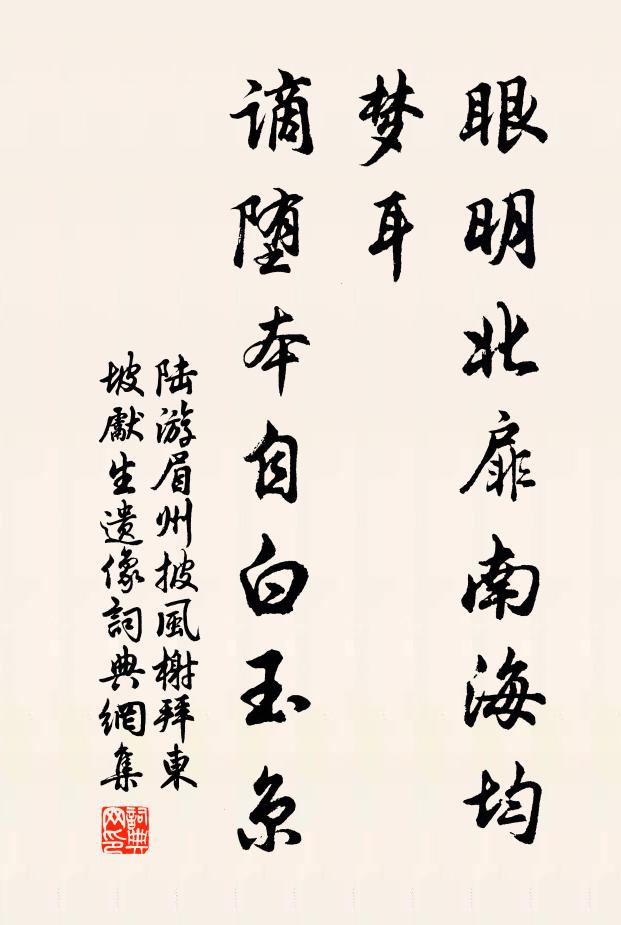 眼明北扉南海均
梦耳
谪堕本自白玉京
陆游眉州披風榭拜東
坡獻生遗像詞典網集
詞典网印